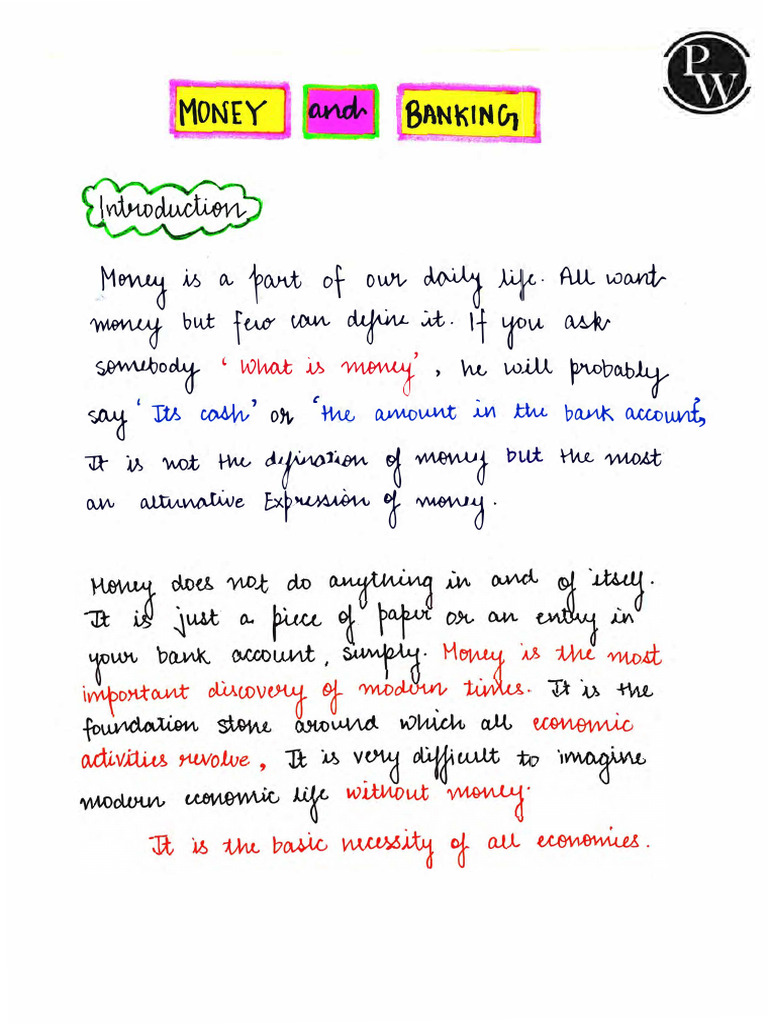 PW
MONEY and BANKING
Introduction
Money is a part of our daily life. All want
money but few can define it. If you ask
somebody 'What is money', he will probably
say 'Its cash' or 'the amount in the bank account',
It is not the defination of money but the most
an alturnative Expression of money.
Money does not do anything in and of itself.
It is just a piece of paper or an entry in
your bank account, simply. Money is the most
important discovery of modern times. It is the
foundation stone around which all economic
activities revolve, It is very difficult to imagine
modern economic life without money.
It is the basic necessity of all economies.